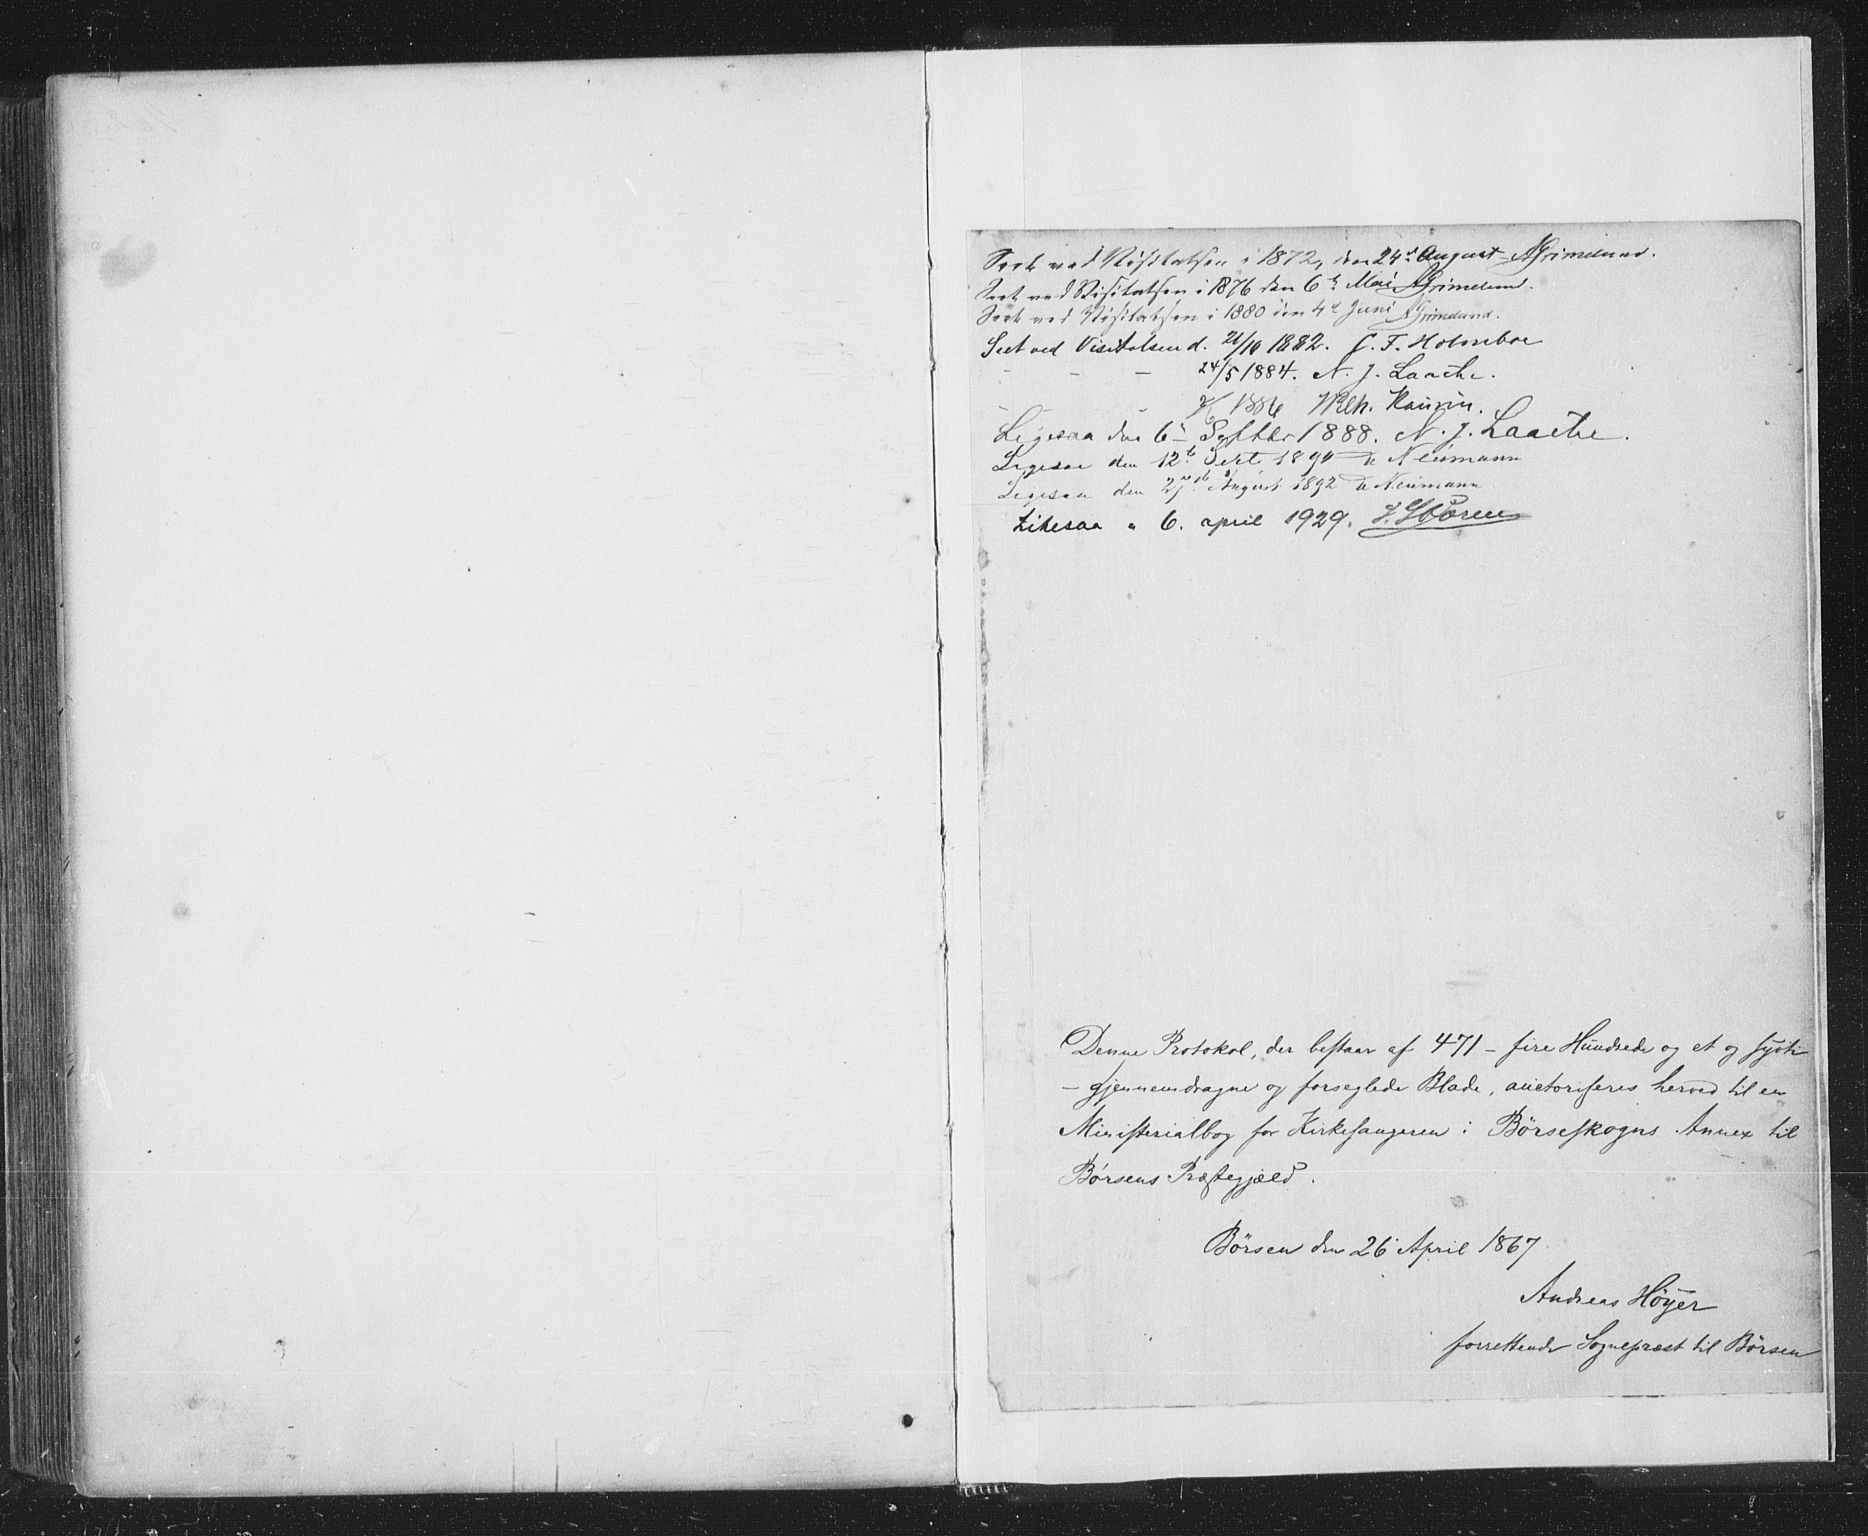 Seet ved Visitatsen i 1872, den 24de August AGrimelund.
Seet ved Visitatsen i 1876 den 6te Mai AGrimelund.
Seet ved Visitatsen i 1880 den 4de Juni AGrimelund.
Seet ved Visitatsen d. 21/10 1882. C. F. Holmboe
— — — 24/5 1884. N. J. Laache.
1886 Wilh. Haurin.
Ligesaa den 6te Septbr 1888. N. J. Laache.
Ligesaa den 12te Sept. 1890 Neumann
Ligesaa den August 1892 Neumann
Likesaa " 6. april 1929. J. Støren
Denne Protokol, der bestaar af 471 – fire Hundrede og et og sytti
– gjennemdragne og forseglede Blade, auctoriseres herved til en
Ministerialbog for Kirkesangeren i Børseskogns Annex til
Børsens Præstegjæld.
Børsen den 26 April 1867
Andreas Høyer
forrettende Sognepræst til Børsen